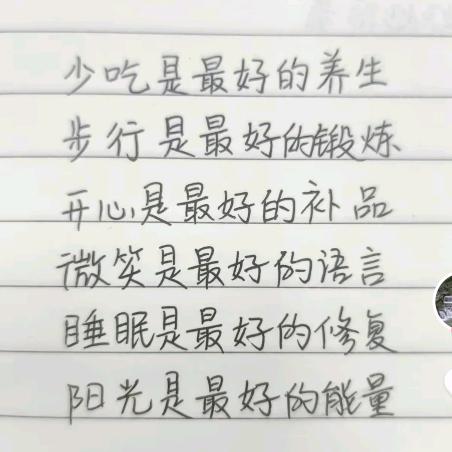 少吃是最好的养生
步行是最好的锻炼
开心是最好的补品
微笑是最好的语言
睡眠是最好的修复
阳光是最好的能量